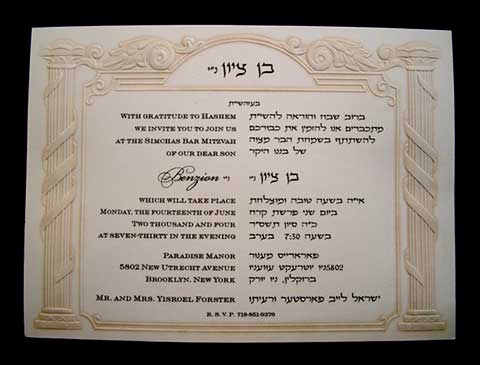 בן ציון ני"ו
בעזהשי"ת
With gratitude to Hashem
we invite you to join us
at the Simchas Bar Mitzvah
of our dear son
Benzion ני"ו
which will take place
Monday, the fourteenth of June
Two thousand and four
at seven-thirty in the evening
Paradise Manor
5802 New Utrecht Avenue
Brooklyn, New York
Mr. and Mrs. Yisroel Forster
ברוב שבח והודאה להשי"ת
מתכבדים אנו להזמין את כבודכם
להשתתף בשמחת הבר מצוה
של בננו היקר
בן ציון ני"ו
אי"ה בשעה טובה ומוצלחת
ביום שני פרשת קרח
כ"ה סיון תשס"ד
בשעה 7:30 בערב
פאראדייס מענור
5802 ניו יוטרעקט עוועניו
ברוקלין, ניו יורק
ישראל לייב פארסטער ורעיתו
R. S. V. P. 718-851-9376